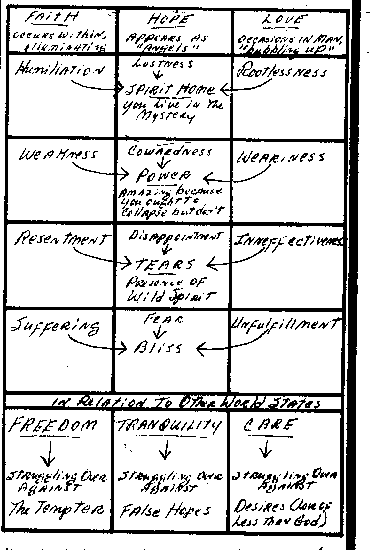 FAITH
occurs within,
illuminating
HOPE
Appears as
"Angels"
LOVE
occasions in Man,
"bubbling up"
Humiliation
Lostness
Rootlessness
Spirit Home
you live in the
Mystery
Weakness
Cowredness
Weariness
Power
Amazing because
you ought to
collapse but don't
Resentment
Disappointment
Inneffectiveness
Tears
Presence of
Wild Spirit
Suffering
Fear
Unfulfillment
Bliss
in Relation To Other World States
FREEDOM
Struggling Over
Against
The Tempter
TRANQUILITY
Struggling Over
Against
False Hopes
CARE
Struggling Over
Against
Desires (love of
less than God)